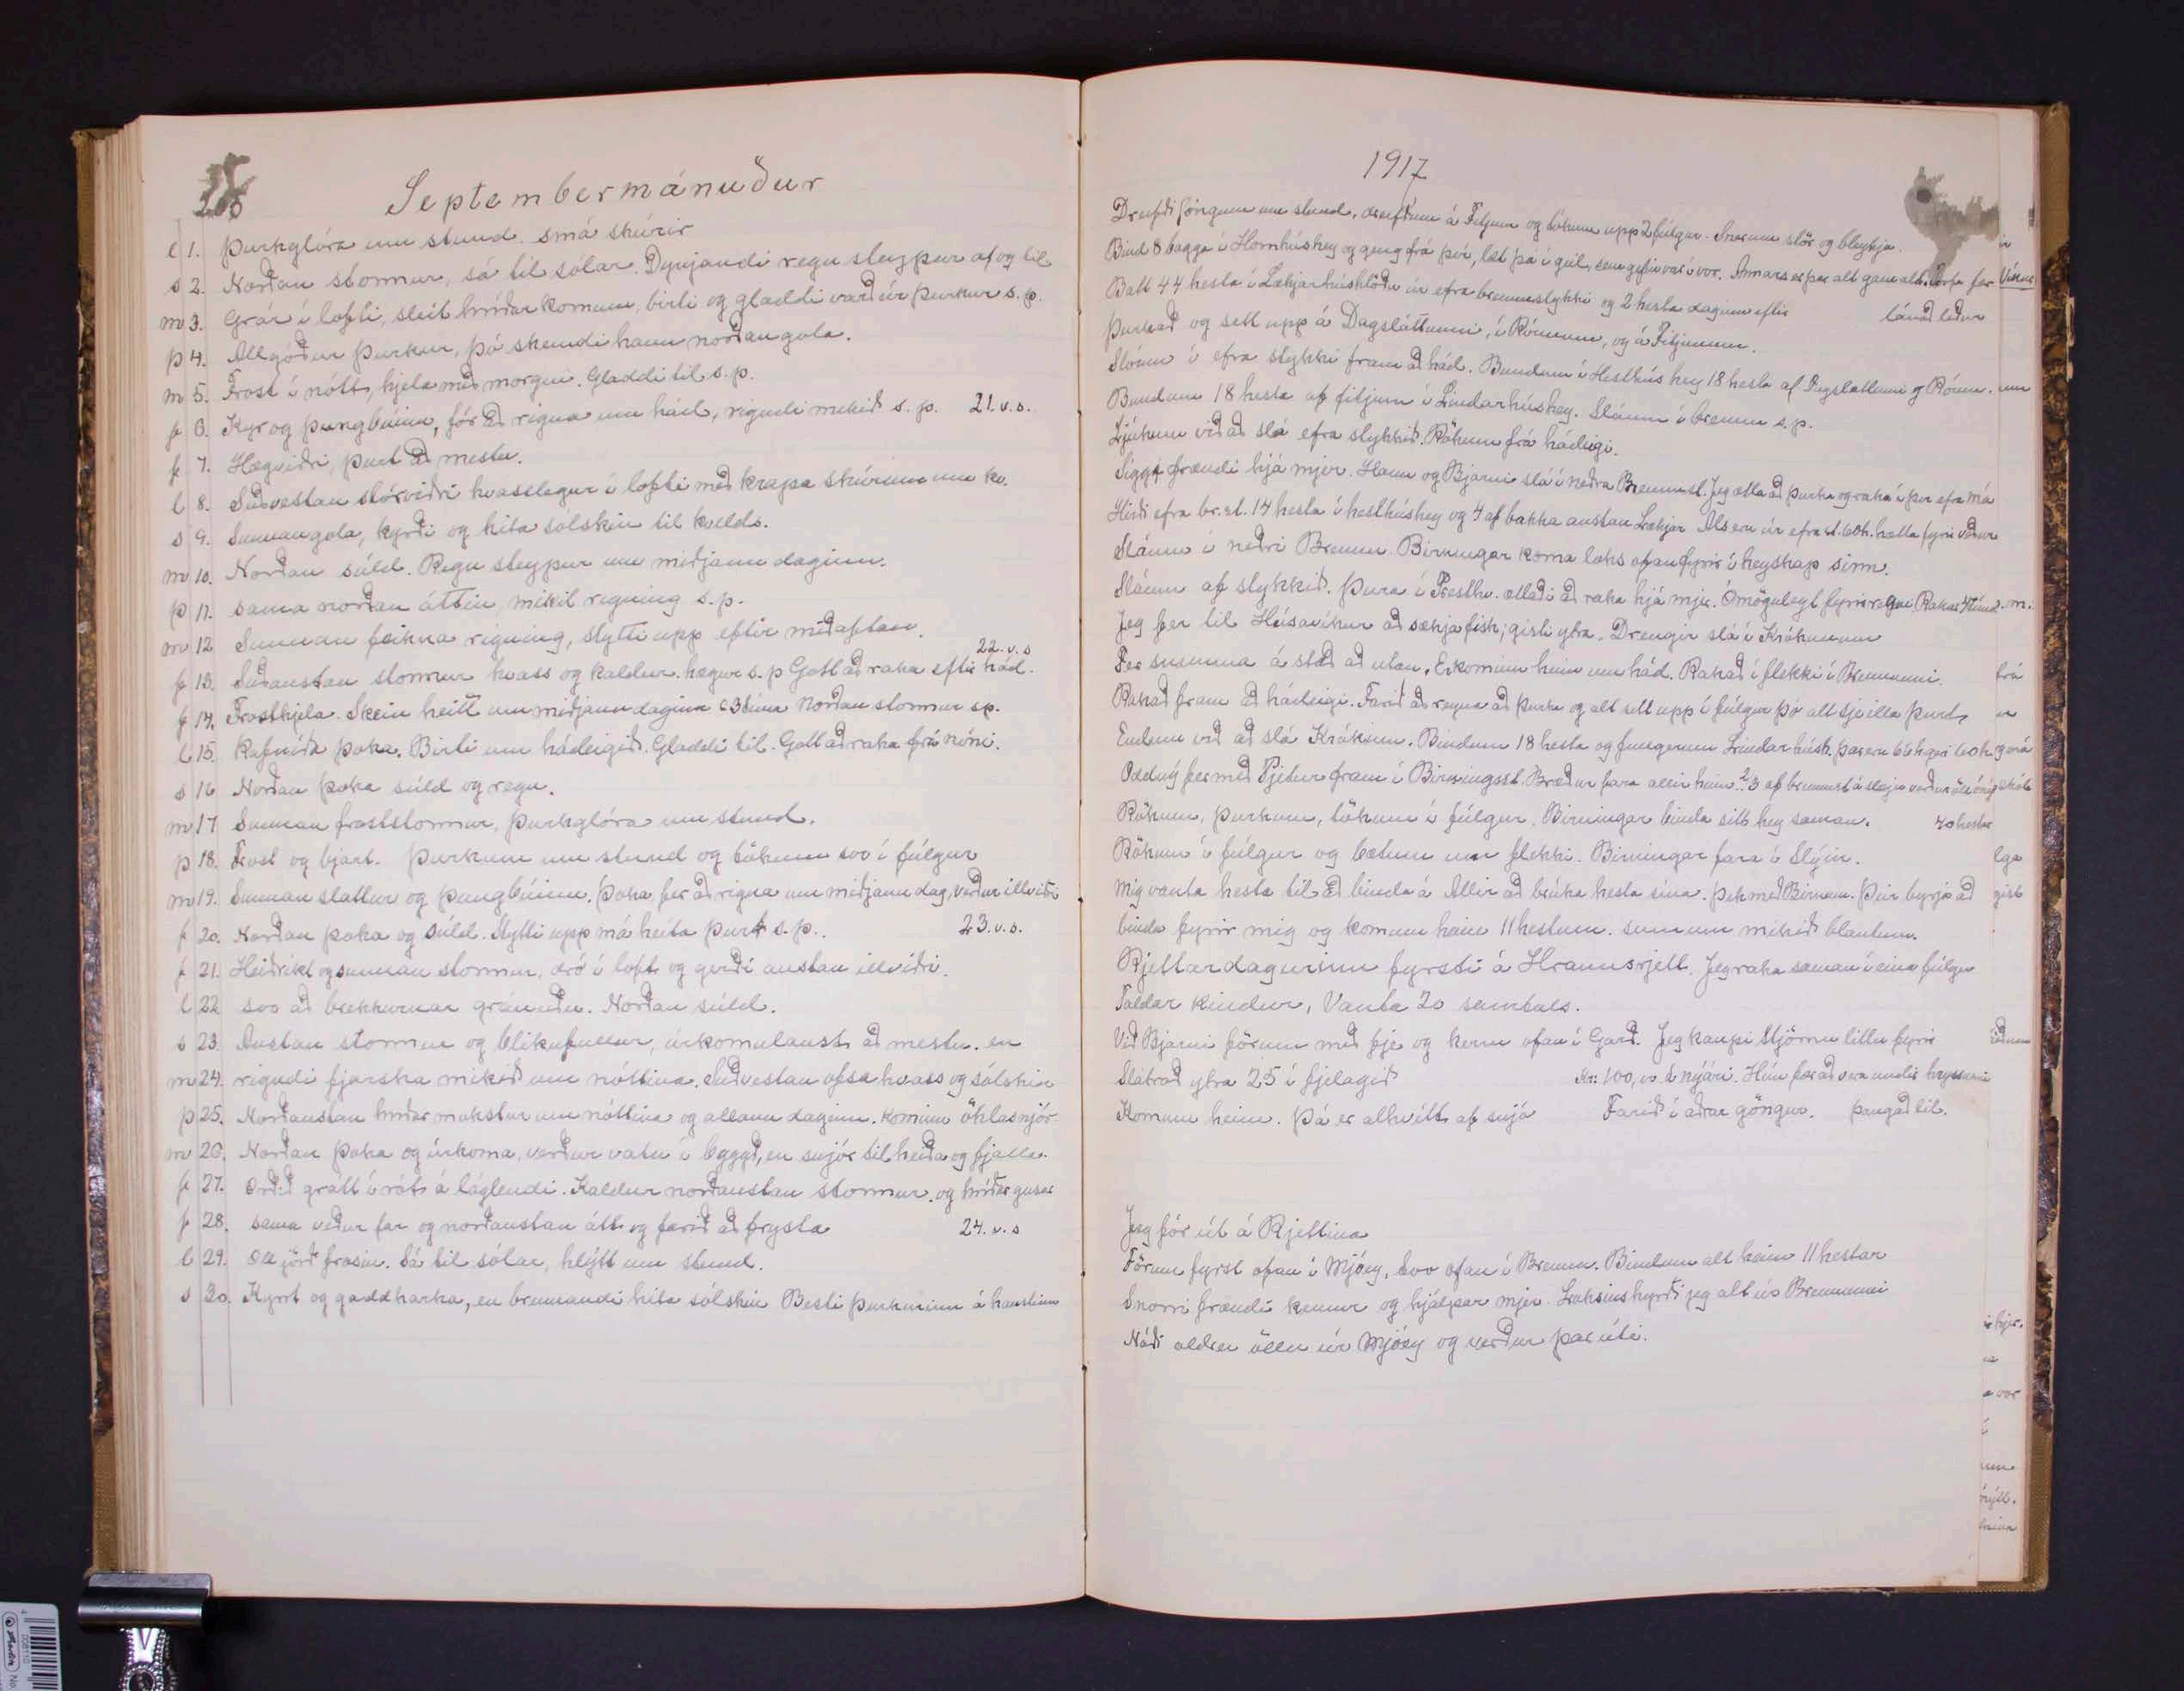 Septembermánuður
l 1. Þurkglóra um stund. smá skúrir
s 2. Norðan stormur, sá til sólar. Dynjandi regn steypur af og til
m 3. Grár í lofti, sleit hríðar komum, birti og gladdi varð úr þurkur s.p.
þ 4. Allgóður þurkur, þó skemdi hann norðangola.
m 5. Frost í nótt, hjela með morgni. Gladdi til s.p.
f 6. Kyr og þungbúinn, fór að rigna um hád, rigndi mikið s.p. 21.v.s.
f 7. Hægviðri, þurt að mestu.
l 8. Suðvestan stórviðri hvasslegur í lofti með krapa skúrum um kv.
s 9. Sunnangola, kyrði og hita sólskin til kvelds.
m 10. Norðan súld. Regn steypur um miðjann daginn.
þ 11. sama norðan áttin, mikil regning s.p.
m 12 Sunnan feikna rigning, stytti upp eftir miðaftan.
22.v.s
f 13. Suðaustan stormur hvass og kaldur. hægur s.p Gott að raka eftir hád.
f 14. Frosthjela. Skein heitt um miðjann daginn c 3 tíma Norðan stormur sp.
l 15. Kafníða þoka. Birti um hádeigið. Gladdi til. Gott að raka frá nóni.
s 16 Norðan þoka súld og regn.
m 17 Sunnan froststormur, þurkglóra um stund.
þ 18. Frost og bjart. Þurkum um stund og tökum svo í fúlgur
m 19. Sunnan slattur og þungbúinn, þoka fer að rigna um miðjann dag, verður illviðri
f 20. Norðan þoka og súld. Stytti upp má heita þurt s.p.. 23.v.s.
f 21. Heiðrikt og sunnan stormur, dró í loft og gerði austan illviðri.
l 22 svo að brekkurnar gránuðu. Norðan súld.
s 23. Austan stormur og blikufullur, úrkomulaust að mestu. en
m 24. rigndi fjarska mikið um nóttina. Suðvestan ofsa hvass og sólskin
þ 25. Norðaustan hríðar mokstur um nóttina og allann daginn. kominn öklasnjór
m 26. Norðan þoka og úrkoma, verður vatn í byggð, en snjór til heiða og fjalla.
f 27. Orðið grátt í rót á láglendi. Kaldur norðaustan stormur. og hríðar gusur
f 28. sama veður far og norðaustan átt og farið að frysta 24.v.s
l 29. Öll jörð frosin. Sá til sólar, hlýtt um stund.
s 30. Kyrt og gaddharka, en brennandi hita sólskin Besti þurkurinn á haustinu
1917
Dreifði föngum um stund, dreifðum á Fitjum og tókum upp 2 fúlgur. Snerum stör og bleykja.
Bind 8 bagga í Hornhúshey og geng frá því, læt þá í geil, sem gefin var í vor. Annars er þar alt gamalt.
Batt 44 hesta í Lækjarhúshlöðu úr efra brennustykki og 2 hesta daginn eftir lánað leður
Þurkað og sett upp á Dagsláttunni, í Rónum, og á Fitjunum.
Slóum í efra stykki fram að hád. Bundum í Hesthús hey 18 hesta af Dagsláttuni og Rónum.
Bundum 18 hesta af fitjum í Lindarhúshey. Sláum í brennu s.p.
Ljúkum við að slá efra stykkið. Rökum frá hádeigi.
Siggi frændi hjá mjer. Hann og Bjarni slá í neðra Brennust. Jeg ætla að þurka og raka í þer efra má
Hirði efra br.st. 14 hesta í hesthúshey og 4 af bakka austan Lækjar Als eru úr efra st. 60 h.
Sláum í neðri Brennu Birningar koma loks ofan fyrir í heyskap sinn.
Sláum af stykkið. Þura í Presthv. ætlaði að raka hjá mjer. Ómögulegt fyrir regni
Jeg fer til Húsavíkur að sækja fisk; gisti ytra. Drengir slá í Krókunum
Fer snemma á stað að utan. Er kominn heim um hád. Rakað í flekki í Brennunni.
Rakað fram að hádeigi. Farið að reyna að þurka og alt sett upp í fúlgur þó alt sje illa þurt,
Endum við að slá Krókinn. Bindum 18 hesta og fungerum Lindarhúsh. þar eru
Oddný fer með Pjetur fram í Birningsst. Bræður fara allir heim
Rökum, þurkum, tökum í fúlgur. Birningar binda sitt hey saman. 40 hestar
Rökum í fúlgur og bætum um flekki. Birningar fara í Slýin.
Mig vanta hesta til að binda á Allir að brúka hesta sína. Þeir byrja að
binda fyrir mig og komum heim 11 hestum. sumum mikið blautum.
Rjettardagurinn fyrsti á Hraunsrjett. Jeg raka saman í eina fúlgu
Taldar kindur, Vanta 20 samtals.
Við Bjarni förum með fje og kerru ofan í Garð. Jeg kaupi Stjörnu litlu fyrir
Slátrað ytra 25 í fjelagið kr: 100, á nýári. Hún fær að vera undir
Komum heim. Þá er alhvítt af snjó Farið í aðrar göngur. þangað til.
Jeg fór út á Rjettina
Förum fyrst ofan í Mjóey, svo ofan í Brennu. Bindum alt heim 11 hestar
Snorri frændi kemur og hjálpar mjer. Loksins hyrði jeg alt úr Brennunni
Náði aldrei öllu úr Mjóey og verður þar úti.